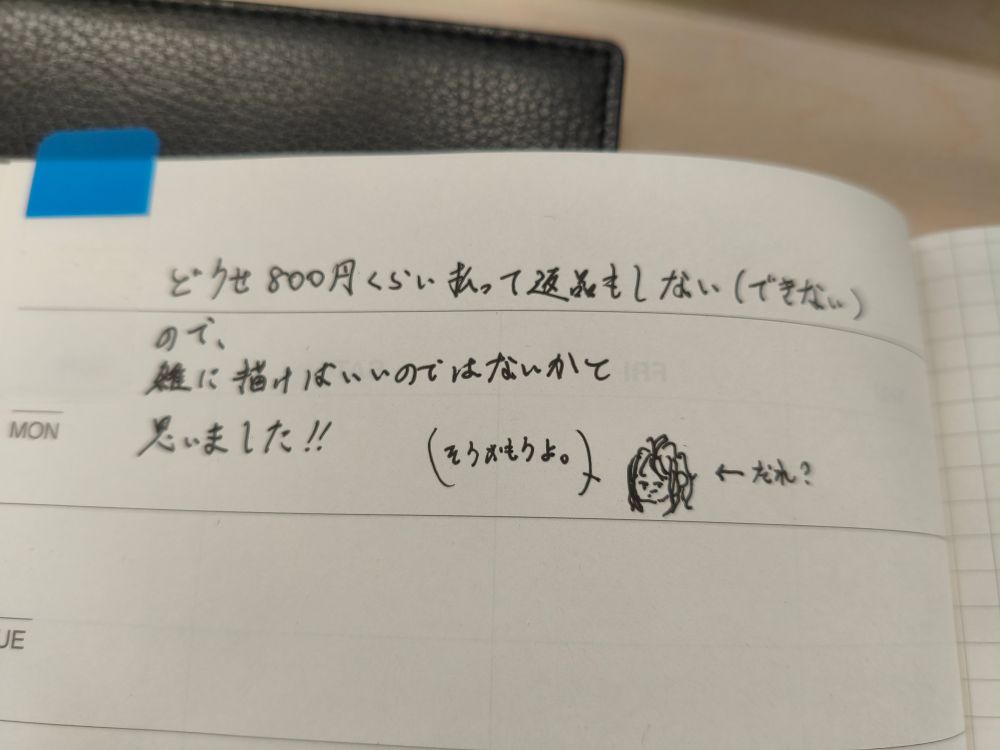 どうせ800円くらい払って返品もしない(できない)
ので、
雑に描けばいいのではないかと
思いました!!
(そうおもうよ。) ←だれ?
MON
UE